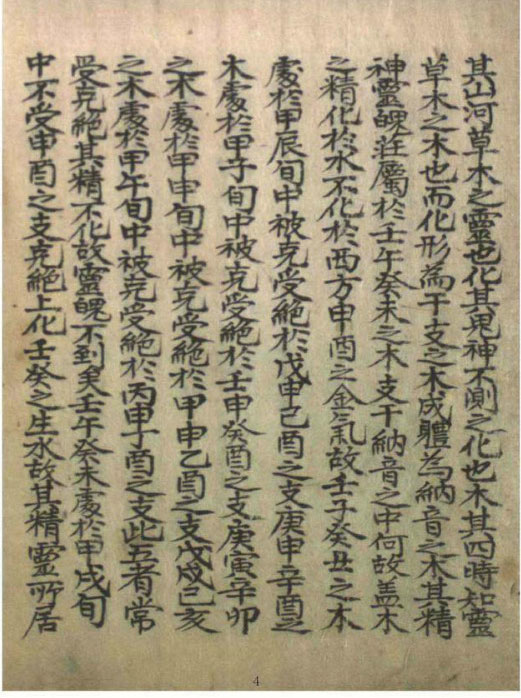 其山河草木之靈也化其鬼神不測之化也木其四時知靈
草木之木也而化形為干支之木成體為納音之木其精
神靈魄莊屬於壬午癸未之木支干納音之中何故盖木
之精化於水不化於西方申酉之金氣故壬子癸丑之木
處於甲辰旬中被克受絕於戊申己酉之支庚申辛酉之
木處於甲子旬中被克受絕於壬申癸酉之支庚寅辛卯
之木處於甲申旬中被克受絕於甲申乙酉之支戊戌己亥
之木處於甲午旬中被克受絕於丙甲丁酉之支此五者常
受克絕其精不化故靈魄不到矣壬午癸未處於甲戌旬
中不受申酉之支克絕上化壬癸之生水故其精靈所居
4